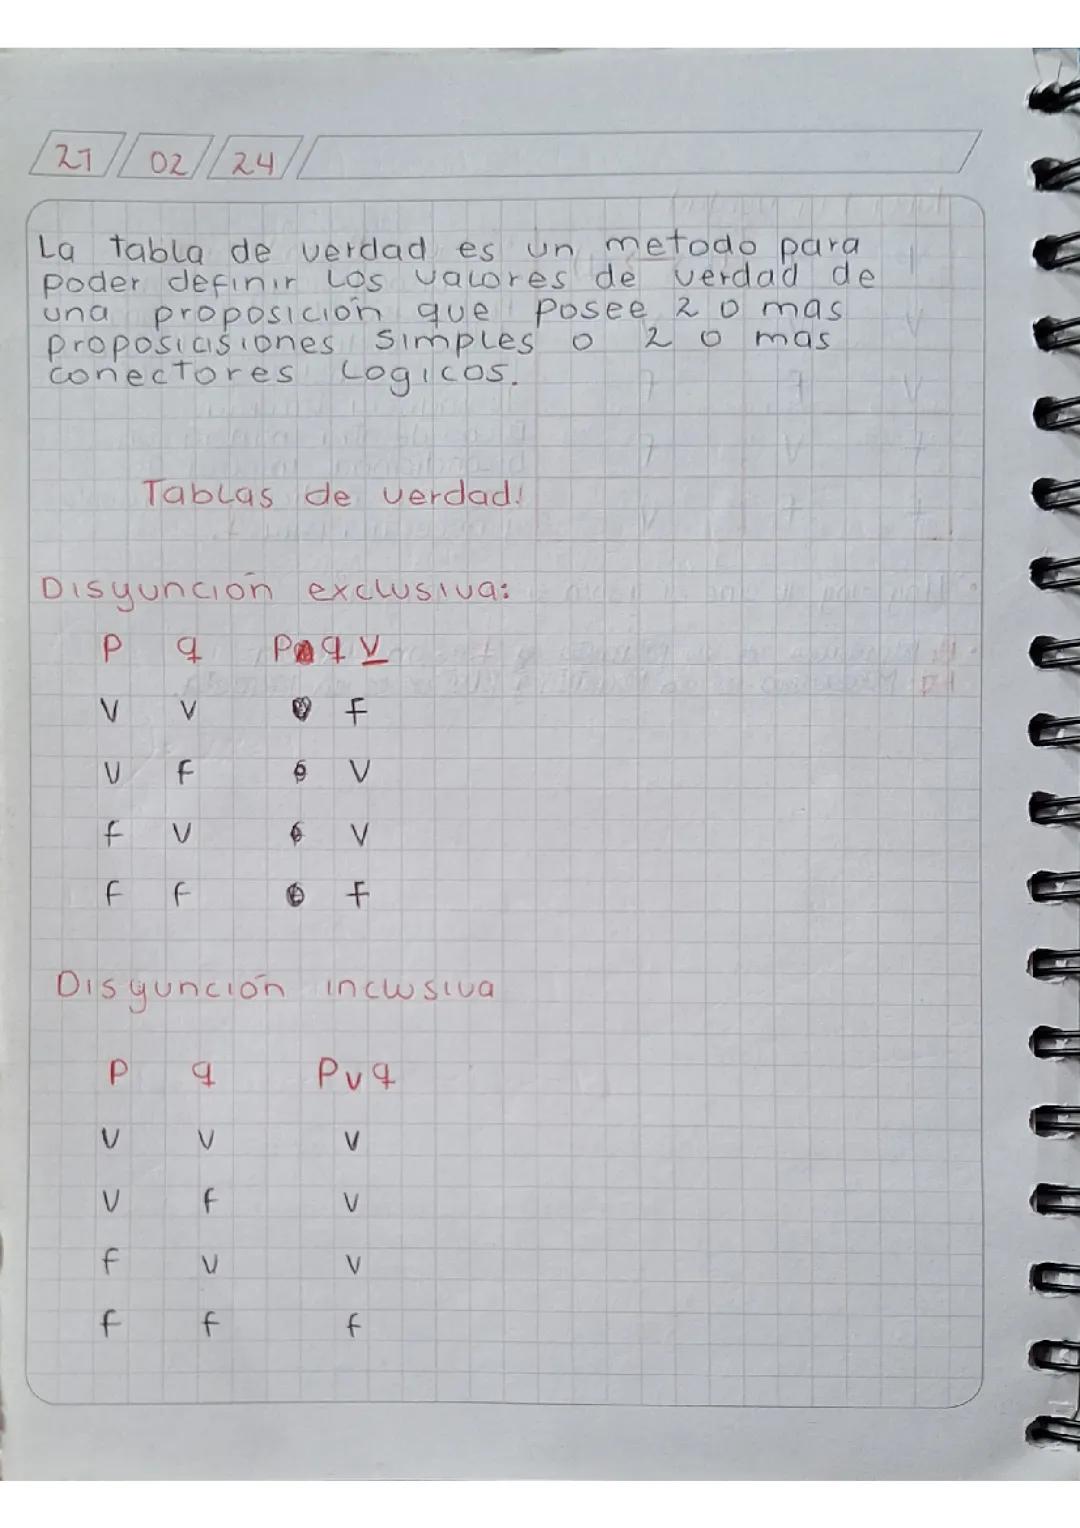 27 02 24
La tabla de verdad es un metodo para
poder definir los valores de verdad de
una proposición que posee 2 o mas
proposicisiones simples o 2 o mas
conectores logicos.
Tablas de verdad:
Disyunción exclusiva:
P q P q v
V V F
V F V
F V V
F F F
Disyunción inclusiva
P q P v q
V V V
V F V
F V V
F F F